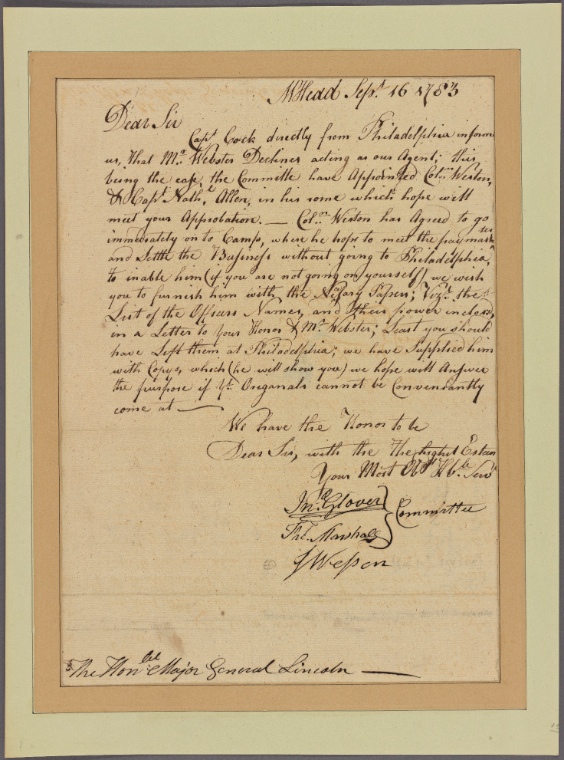 M:Head Sepr. 16 1783
Dear Sir
Capt Cock directly from Philadelphia inform
us, that Mr. Webster Declines acting as our Agent; this
being the case, the Committe have Appointed Coln. Weston,
& Capt. Nathl. Allen, in his some which hope will
meet your Approbation. — Coln. Weston has Agreed to go
immediately on to Camp, where he hops to meet the pay master
and Settle the Business without going to Philadelphia,
to inable him (if you are not going on yourself) we wish
you to furnish him with the Papers; Vizt. the
List of the Officers Names, and their power inclosd
in a Letter to Your Honor & Mr. Webster; Least you should
have Left them at Philadelphia; we have Supplied him
with Copys, which (he will show you) we hope will Answer
the purpose if ye. Oreganals cannot be Convendantly
come at —
We have the Honor to be
Dear Sir, with the the highest Estem
Your Most Obt Hble Servt
Jno. Glover
Committee
Thos. Marshall
J Wesson
The Honble Major General Lincoln —